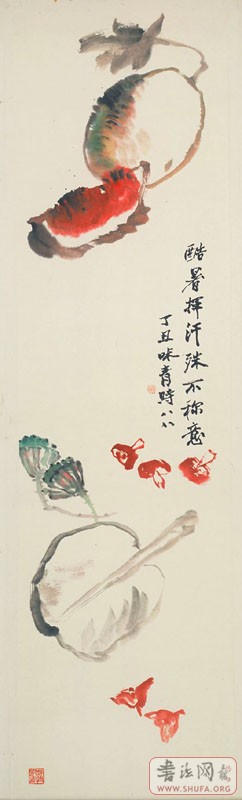 酷暑挥汗殊不称意
丁丑味青時八八
書法网
WWW.SHUFA.COM